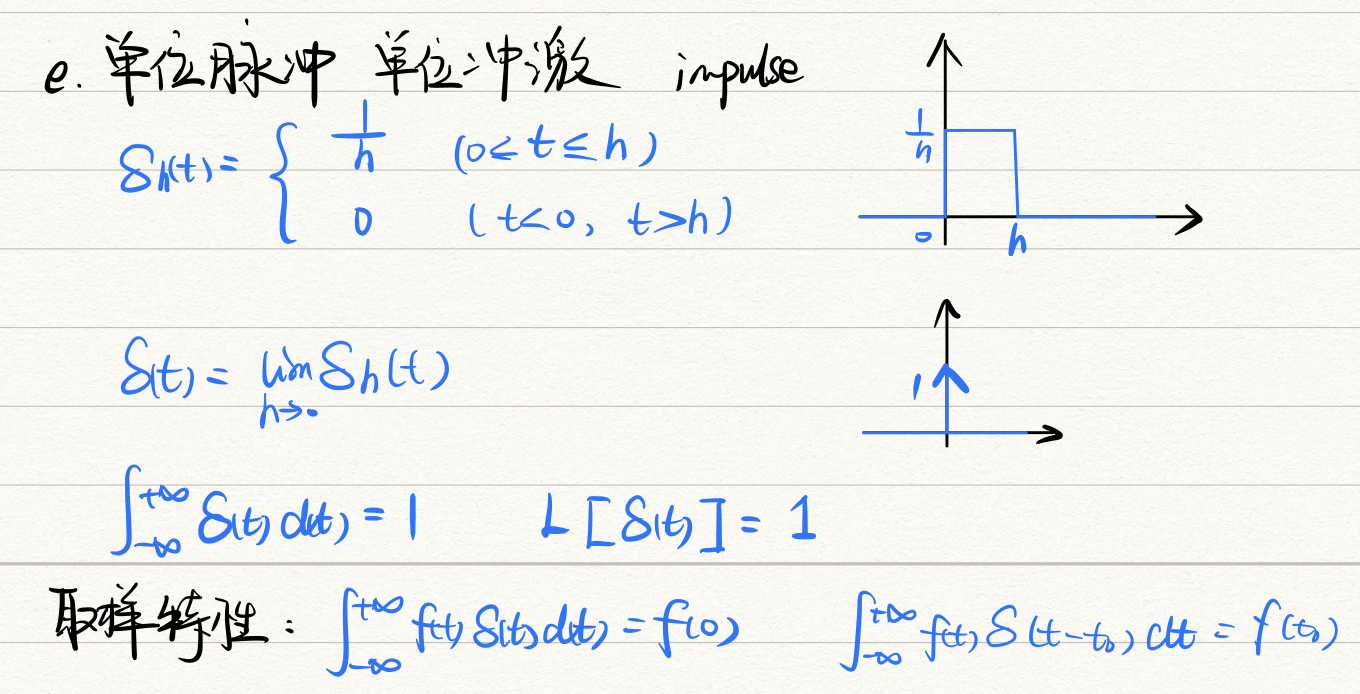 e. 单位脉冲 单位冲激 impulse
δh(t) = { 1/h (0 ≤ t ≤ h)
0 (t<0, t>h)
1/h
0 h
δ(t) = lim δh(t)
h→0
1
∫_{-∞}^{+∞} δ(t) d(t) = 1 L[δ(t)] = 1
取样特性: ∫_{-∞}^{+∞} f(t) δ(t) d(t) = f(0) ∫_{-∞}^{+∞} f(t) δ(t-t₀) dt = f(t₀)